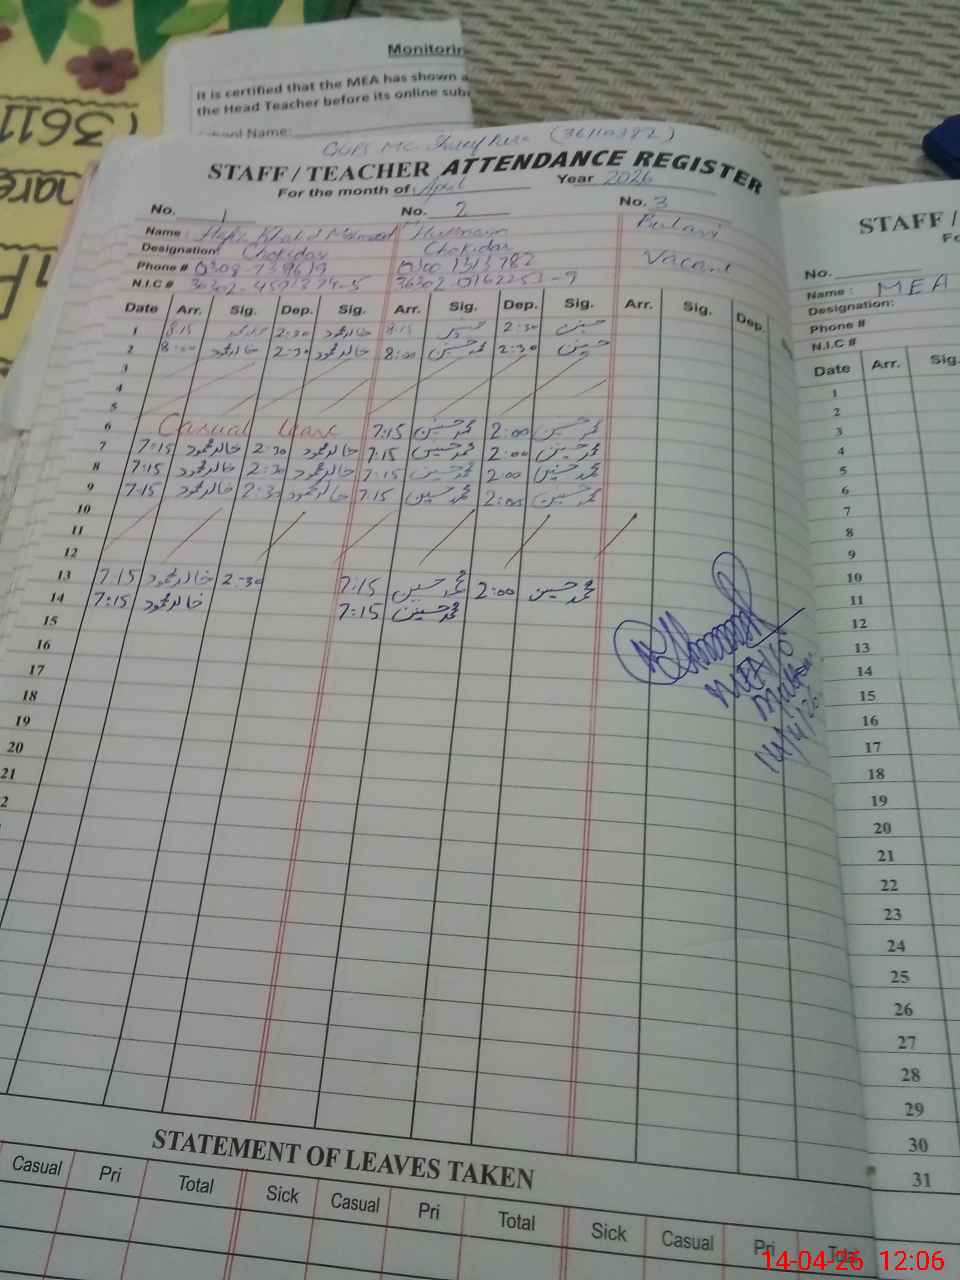 Monitorin
It is certified that the MEA has shown a
the Head Teacher before its online sub
School Name:
(3611
GGPS MC (36110382)
STAFF / TEACHER ATTENDANCE REGISTER
For the month of April Year 2026
No. 1 No. 2 No. 3
Name : Hafiz Khalid Mahmood Hussnain
Designation: Chokidar Chokidar Vacant
Phone # 0300 1313782
N.I.C # 36302-0162253-9
Date Arr. Sig. Dep. Sig. Arr. Sig. Dep. Sig. Arr. Sig. Dep.
1 8:15 2:30 خالد محمود 8:15 2:30 حسین
2 8:00 خالد محمود 2:30 خالد محمود 8:00 محمد حسین 2:30 حسین
3
4
5
6 Casual leave 7:15 محمد حسین 2:00 محمد حسین
7 7:15 خالد محمود 2:30 خالد محمود 7:15 محمد حسین 2:00 محمد حسین
8 7:15 خالد محمود 2:30 خالد محمود 7:15 محمد حسین 2:00 محمد حسین
9 7:15 خالد محمود 2:30 خالد محمود 7:15 محمد حسین 2:00 محمد حسین
10
11
12
13 7:15 خالد محمود 2:30 7:15 محمد حسین 2:00 محمد حسین
14 7:15 خالد محمود 7:15 محمد حسین
15
16
17
18
19
20
21
2
MEA
14/4/26
STATEMENT OF LEAVES TAKEN
Casual Pri Total Sick Casual Pri Total Sick Casual Pri Total
STAFF /
No.
Name : MEA
Designation:
Phone #
N.I.C #
Date Arr. Sig.
1
2
3
4
5
6
7
8
9
10
11
12
13
14
15
16
17
18
19
20
21
22
23
24
25
26
27
28
29
30
31
14-04-26 12:06